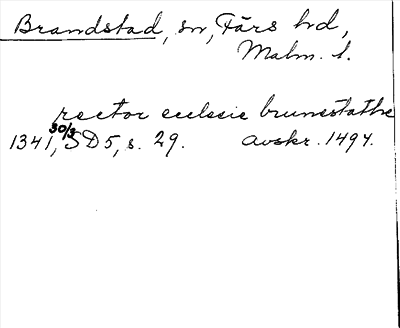 Brandstad, sn, Färs hd,
Malm. l.
rector ecclesie brunestathe
30/3
1341, SD 5, s. 29. avskr. 1494.